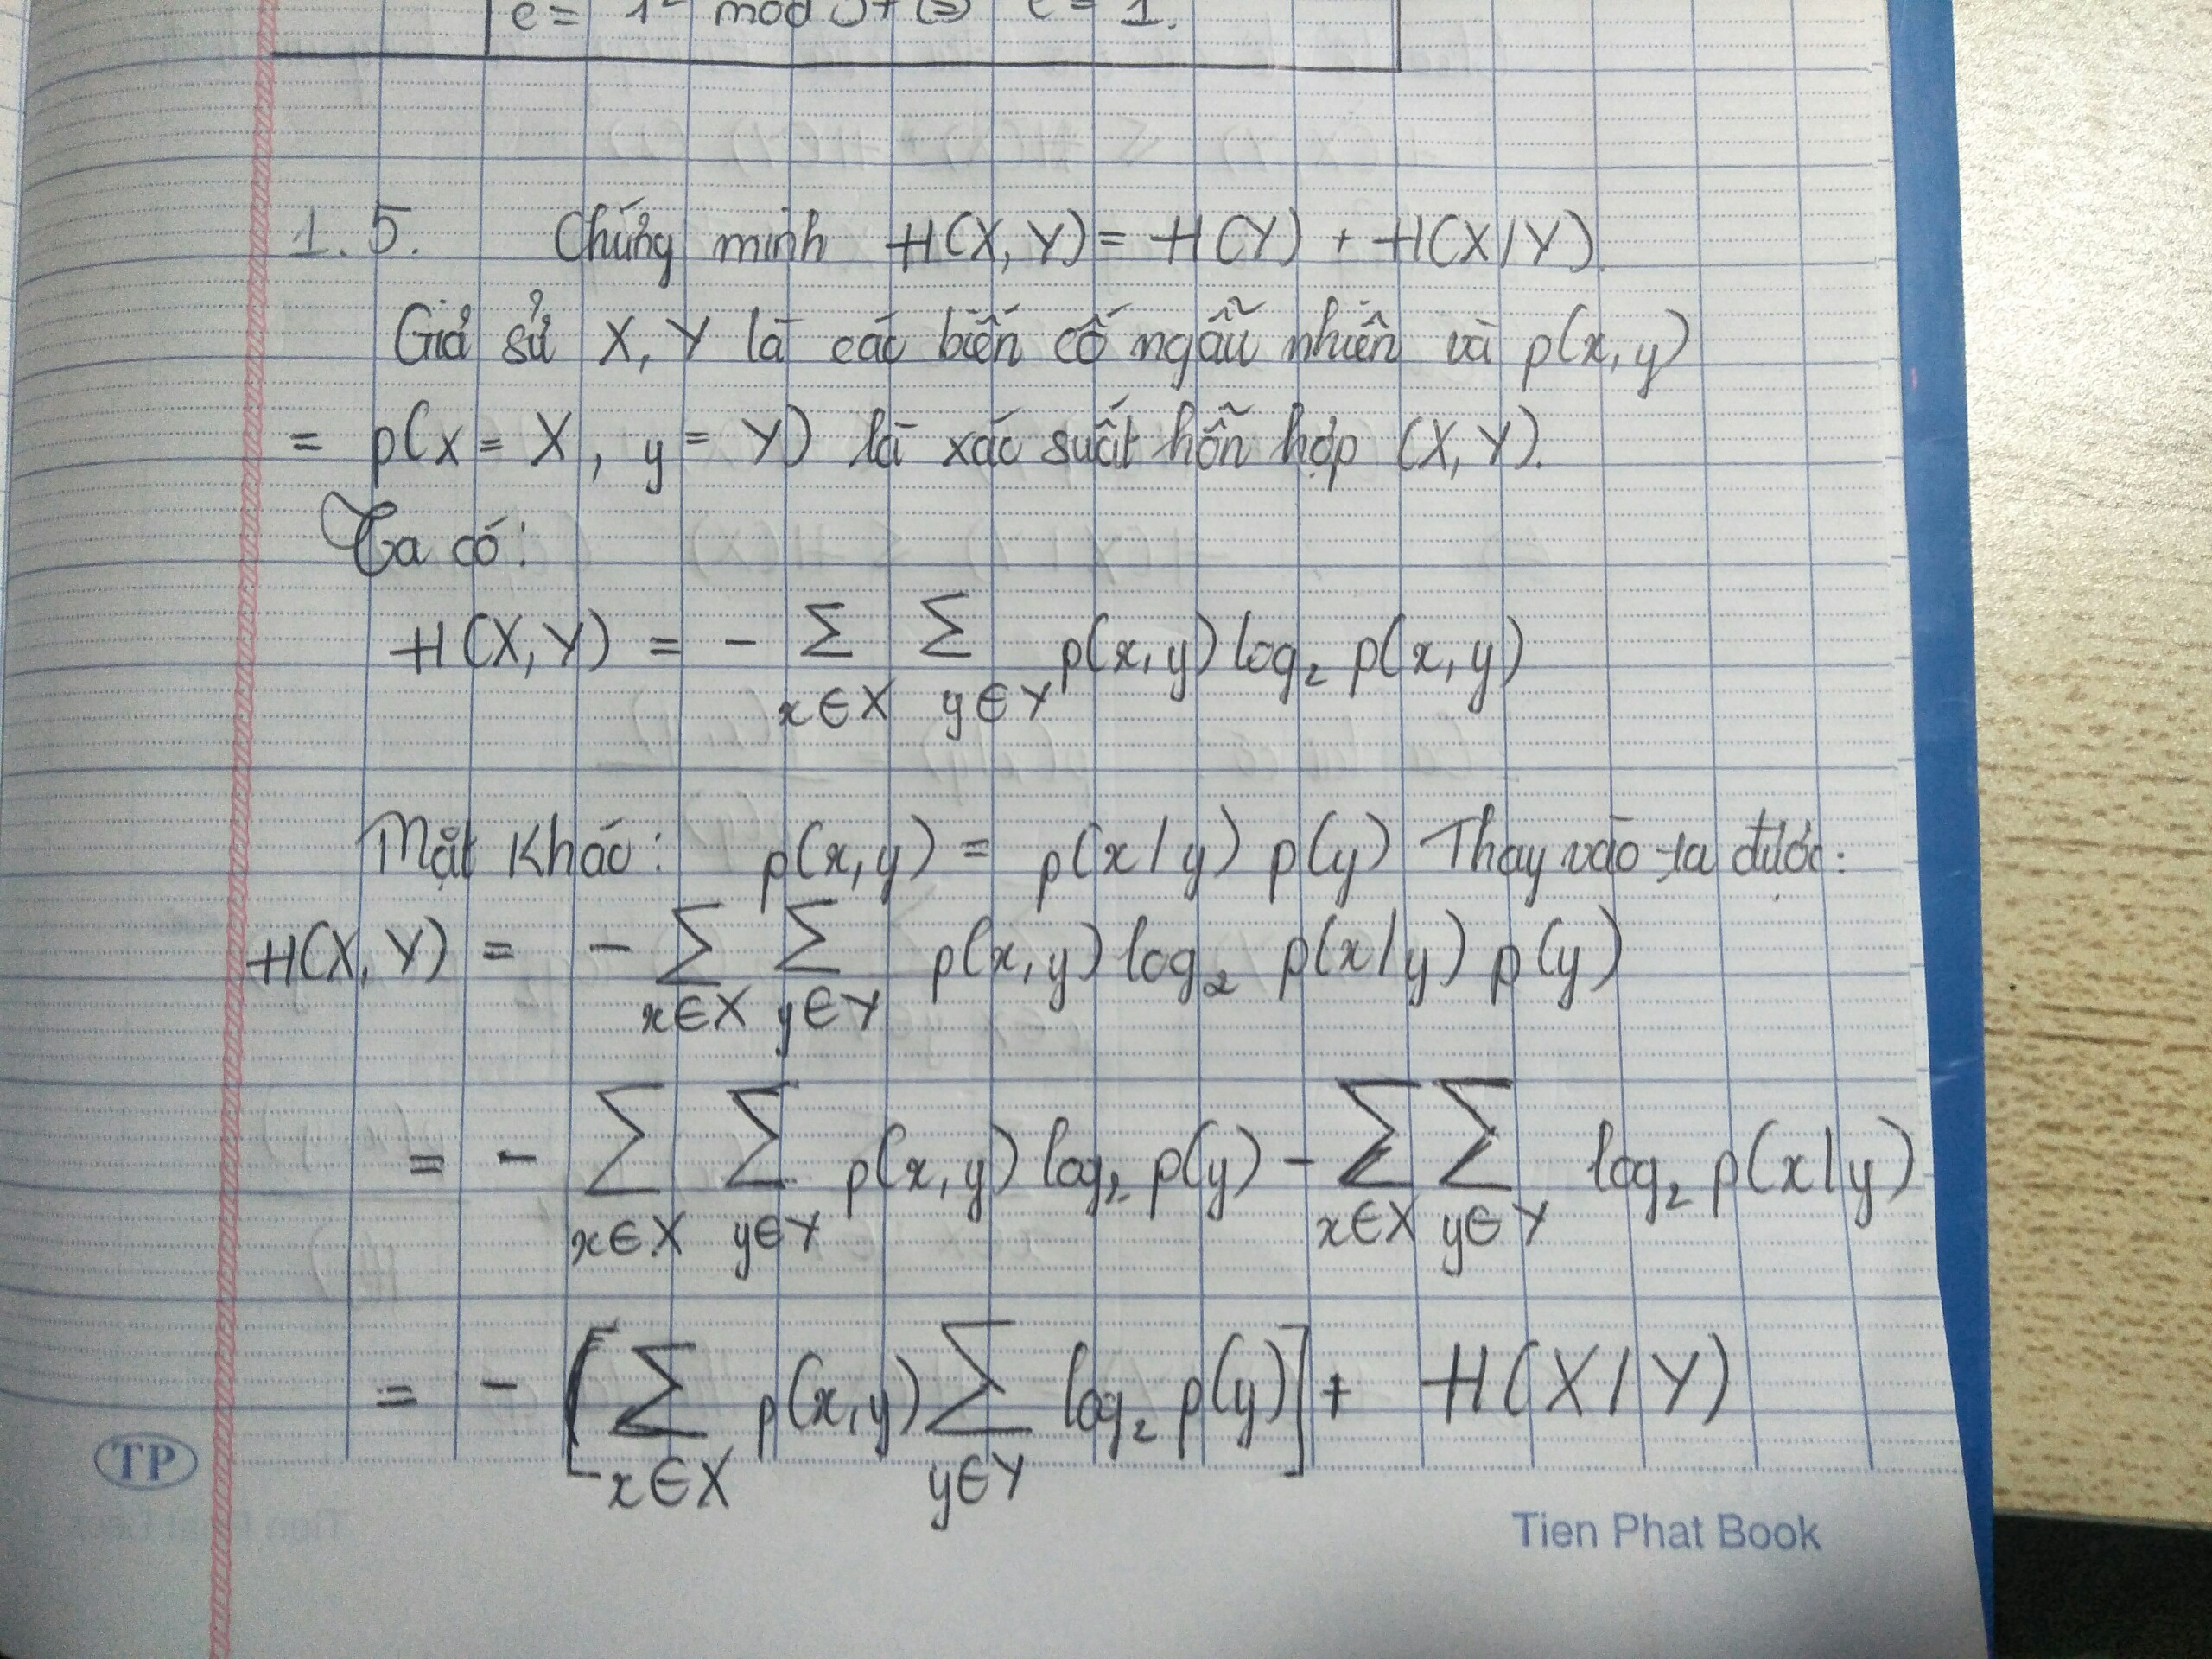 e = 1 mod
e = 1.
1.5. Chứng minh H(X, Y) = H(Y) + H(X/Y).
Giả sử X, Y là các biến cố ngẫu nhiên và p(x, y)
= p(x = X, y = Y) là xác suất hỗn hợp (X, Y).
Ta có:
H(X, Y) = - Σ Σ p(x, y) log₂ p(x, y)
x∈X y∈Y
Mặt khác: p(x, y) = p(x/y) p(y) Thay vào ta được:
H(X, Y) = - Σ Σ p(x, y) log₂ p(x/y) p(y)
x∈X y∈Y
= - Σ Σ p(x, y) log₂ p(y) - Σ Σ log₂ p(x/y)
x∈X y∈Y x∈X y∈Y
= - [Σ p(x, y) Σ log₂ p(y)] + H(X/Y)
x∈X y∈Y
TP
Tien Phat Book